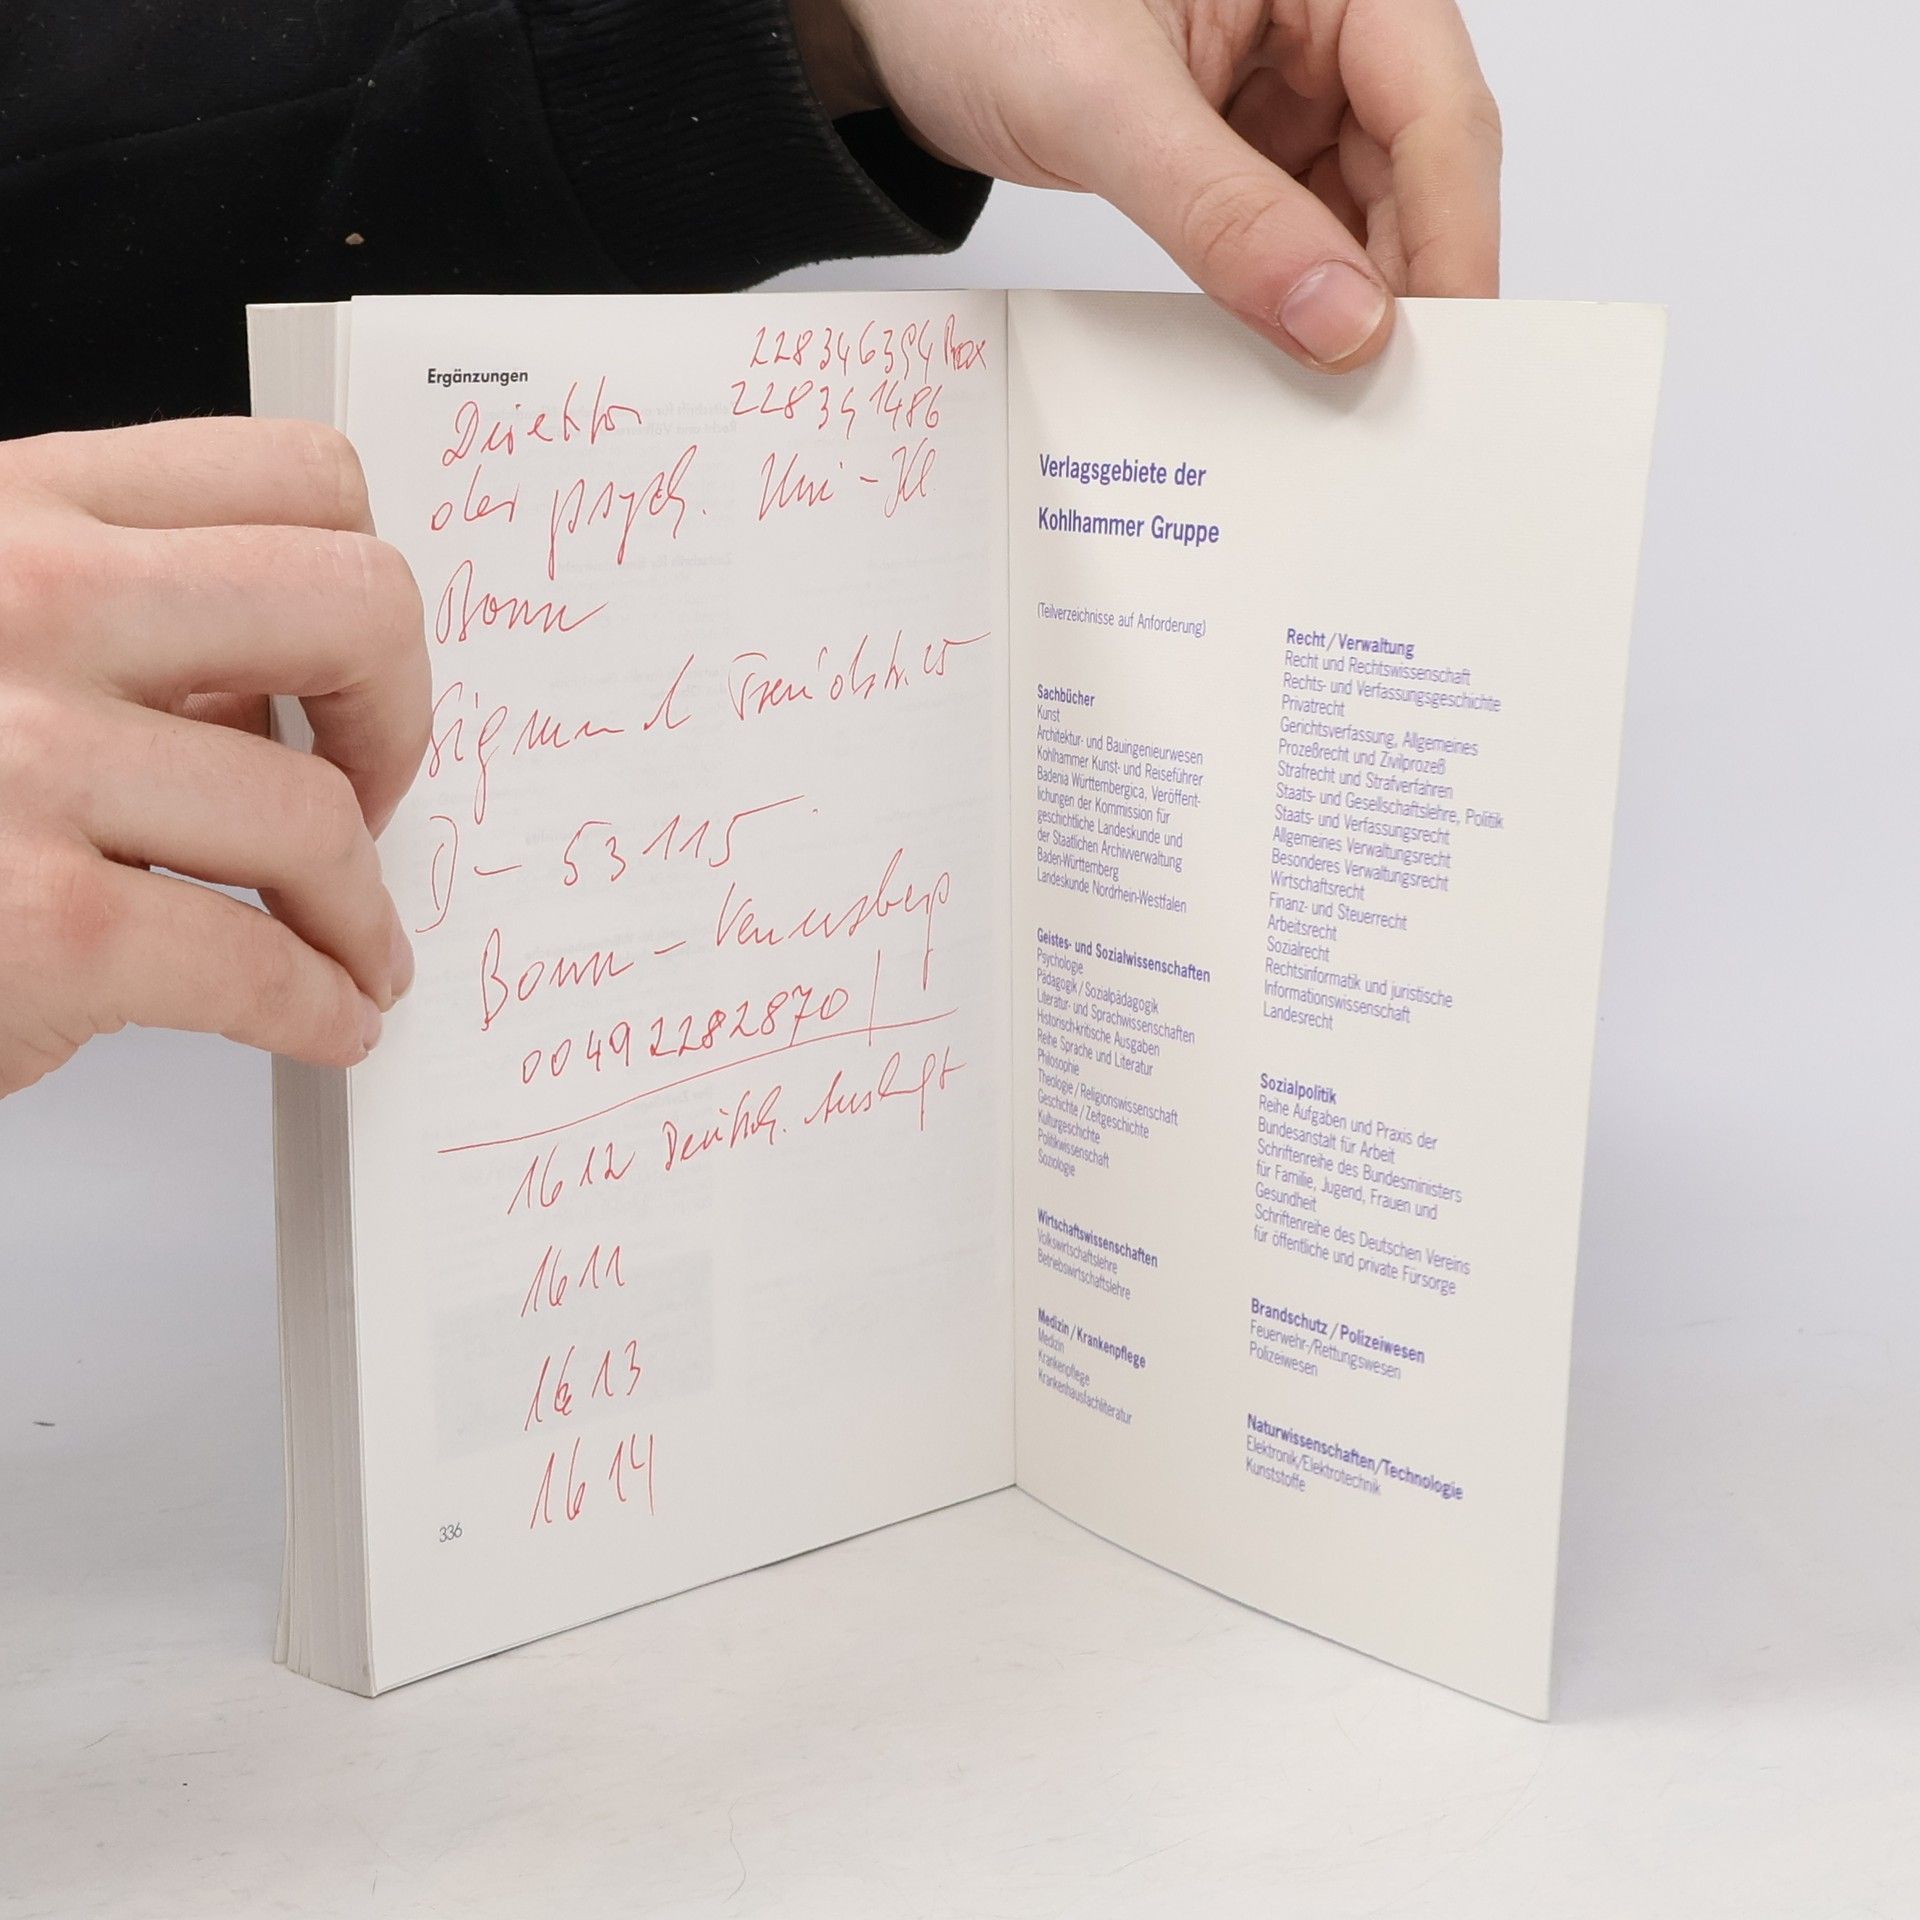 Ergänzungen
228346394
228341486
Direktor
der psych. Uni-Kl.
Bonn
Sigmund Freudstr. 25
D - 53115
Bonn - Venusberg
00492282870
1612 Deutsch. Auskft
1611
1613
1614
336
Verlagsgebiete der
Kohlhammer Gruppe
(Teilverzeichnisse auf Anforderung)
Sachbücher
Kunst
Architektur- und Bauingenieurwesen
Kohlhammer Kunst- und Reiseführer
Badenia Württembergica, Veröffent-
lichungen der Kommission für
geschichtliche Landeskunde und
der Staatlichen Archivverwaltung
Baden-Württemberg
Landeskunde Nordrhein-Westfalen
Geistes- und Sozialwissenschaften
Psychologie
Pädagogik/Sozialpädagogik
Literatur- und Sprachwissenschaften
Historisch-kritische Ausgaben
Reihe Sprache und Literatur
Philosophie
Theologie/Religionswissenschaft
Geschichte/Zeitgeschichte
Kulturgeschichte
Politikwissenschaft
Soziologie
Wirtschaftswissenschaften
Volkswirtschaftslehre
Betriebswirtschaftslehre
Medizin/Krankenpflege
Medizin
Krankenpflege
Krankenhausfachliteratur
Recht/Verwaltung
Recht und Rechtswissenschaft
Rechts- und Verfassungsgeschichte
Privatrecht
Gerichtsverfassung, Allgemeines
Prozeßrecht und Zivilprozeß
Strafrecht und Strafverfahren
Staats- und Gesellschaftslehre, Politik
Staats- und Verfassungsrecht
Allgemeines Verwaltungsrecht
Besonderes Verwaltungsrecht
Wirtschaftsrecht
Finanz- und Steuerrecht
Arbeitsrecht
Sozialrecht
Rechtsinformatik und juristische
Informationswissenschaft
Landesrecht
Sozialpolitik
Reihe Aufgaben und Praxis der
Bundesanstalt für Arbeit
Schriftenreihe des Bundesministers
für Familie, Jugend, Frauen und
Gesundheit
Schriftenreihe des Deutschen Vereins
für öffentliche und private Fürsorge
Brandschutz/Polizeiwesen
Feuerwehr-/Rettungswesen
Polizeiwesen
Naturwissenschaften/Technologie
Elektronik/Elektrotechnik
Kunststoffe